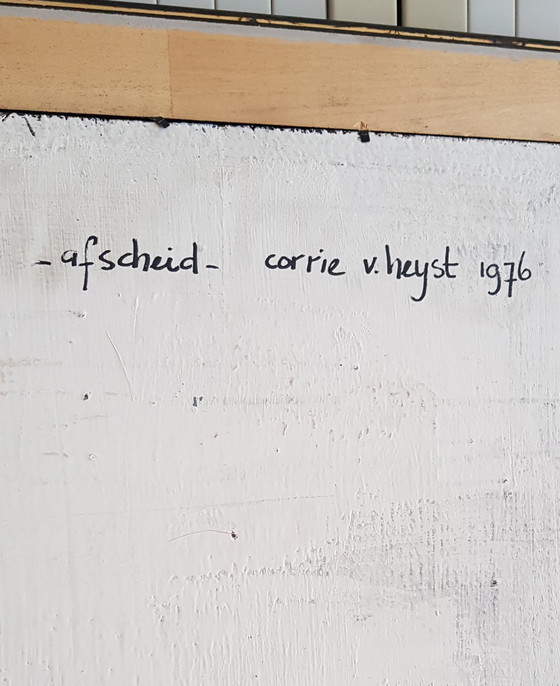 -afscheid- corrie v. heyst 1976